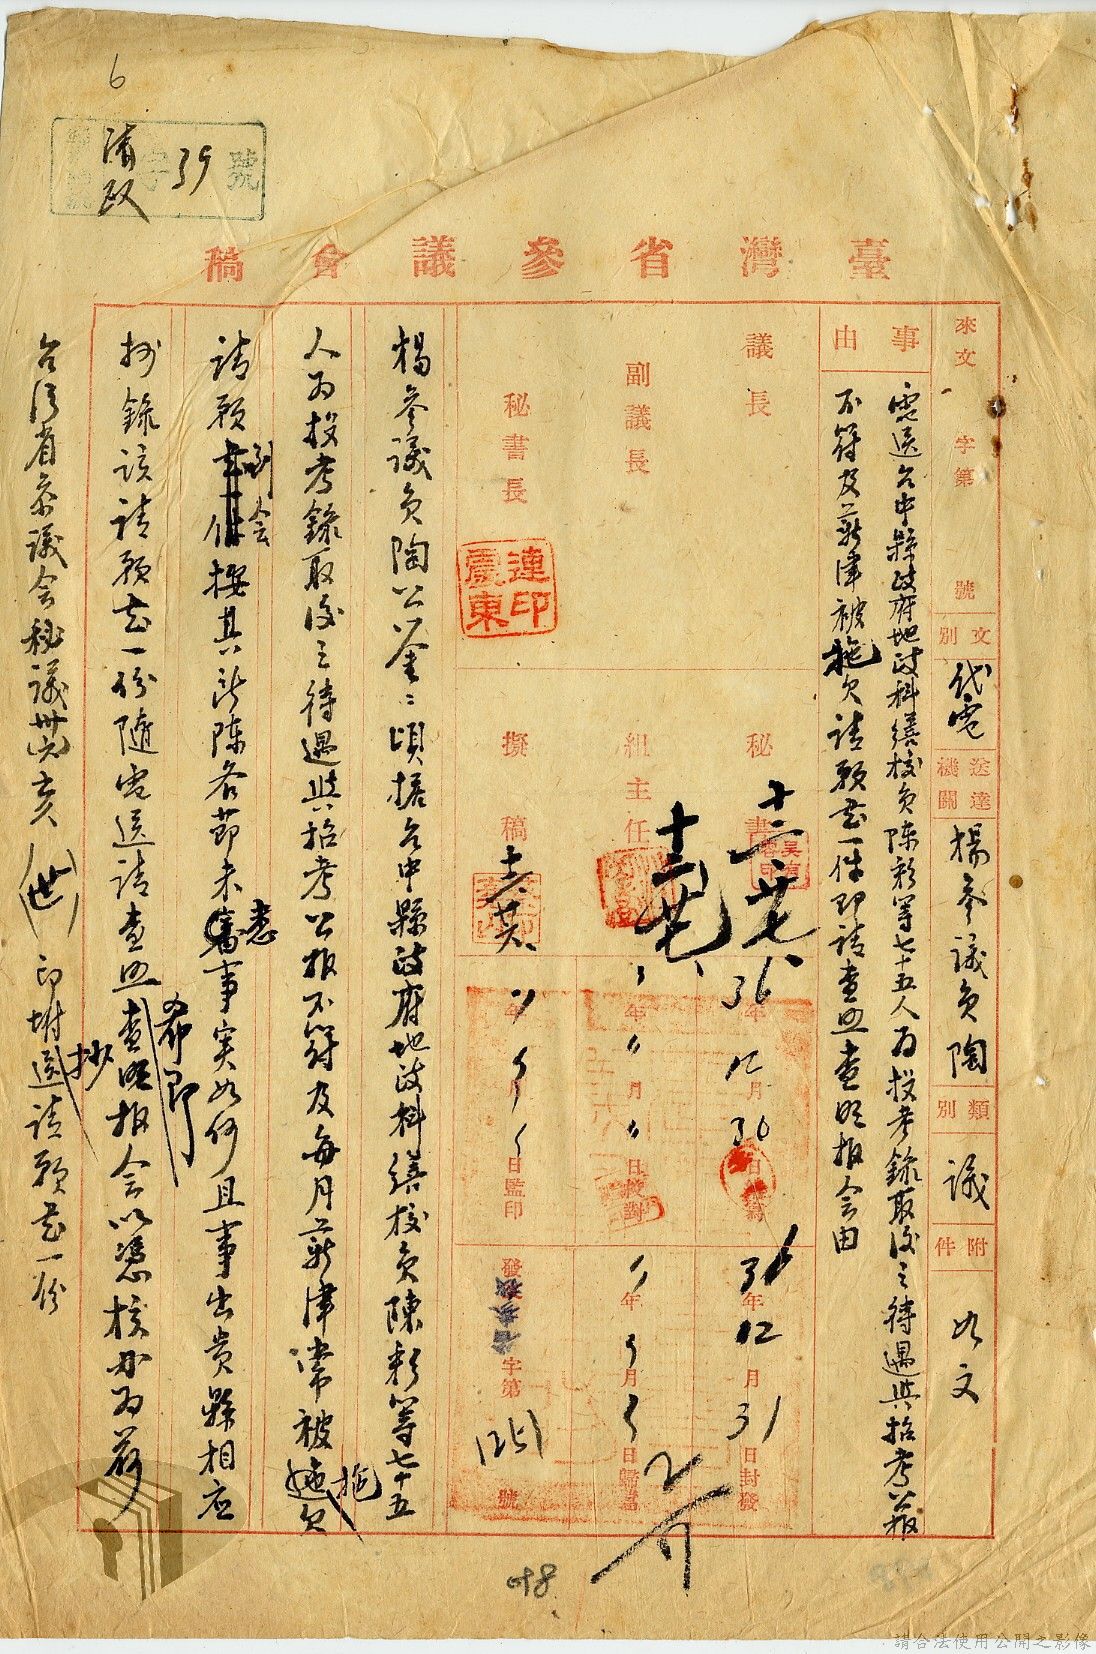 6
請政 字 39 號
臺灣省參議會稿
來文 字第 號
文別 代電
送達機關 楊參議員陶
類別 議
附件 如文
事由
電送台中縣政府地政科繕校員陳彩等七十五人為投考錄取後之待遇與招考公報
不符及薪津被拖欠請願書一件即請查照查明報會由
議長
副議長
秘書長
連震東印
秘書 十二 廿七
組主任 十二 廿七
擬稿 十二 廿六
36年12月30日繕寫
年 月 日校對
年 月 日監印
36年12月31日封發
年 月 日歸檔
發文 字第 1251 號
楊參議員陶公鑒：頃據台中縣政府地政科繕校員陳彩等七十五
人為投考錄取後之待遇與招考公報不符及每月薪津常被拖欠
請願到會據其所陳各節未悉事實如何且事出貴縣相應
抄錄該請願書一份隨電送請查照希即查明報會以憑核辦為荷
台灣省參議會秘議世亥（世）印附抄送請願書一份
098
請合法使用公開之影像